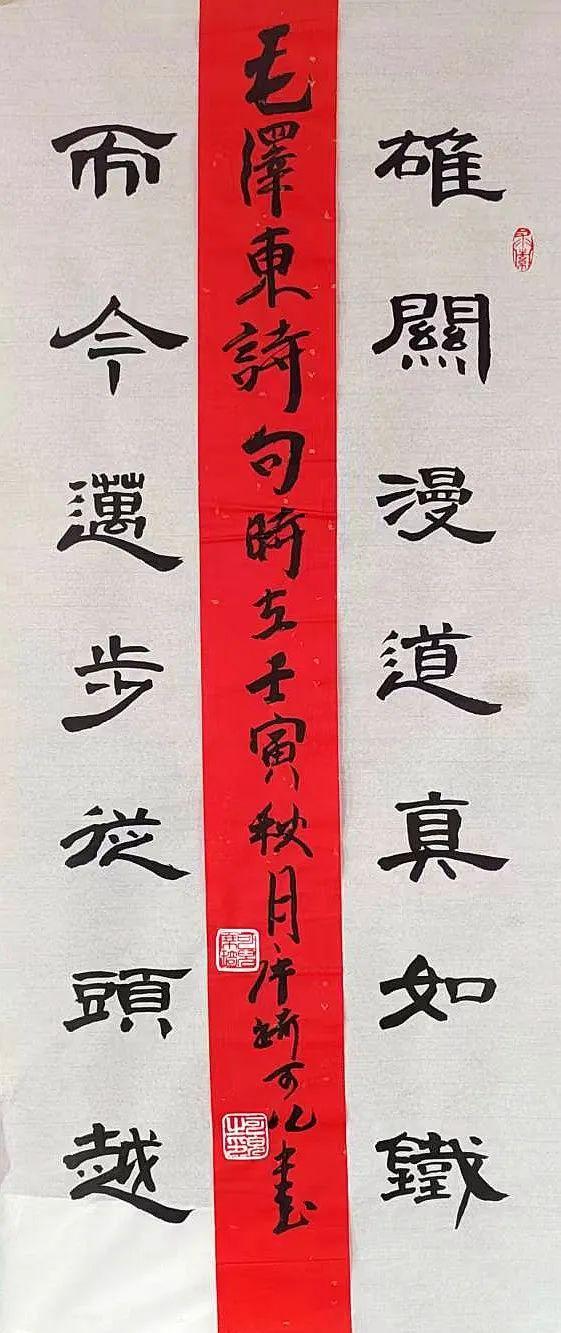 雄關漫道真如鐵
毛澤東詩句時在壬寅秋月可書
而今邁步從頭越